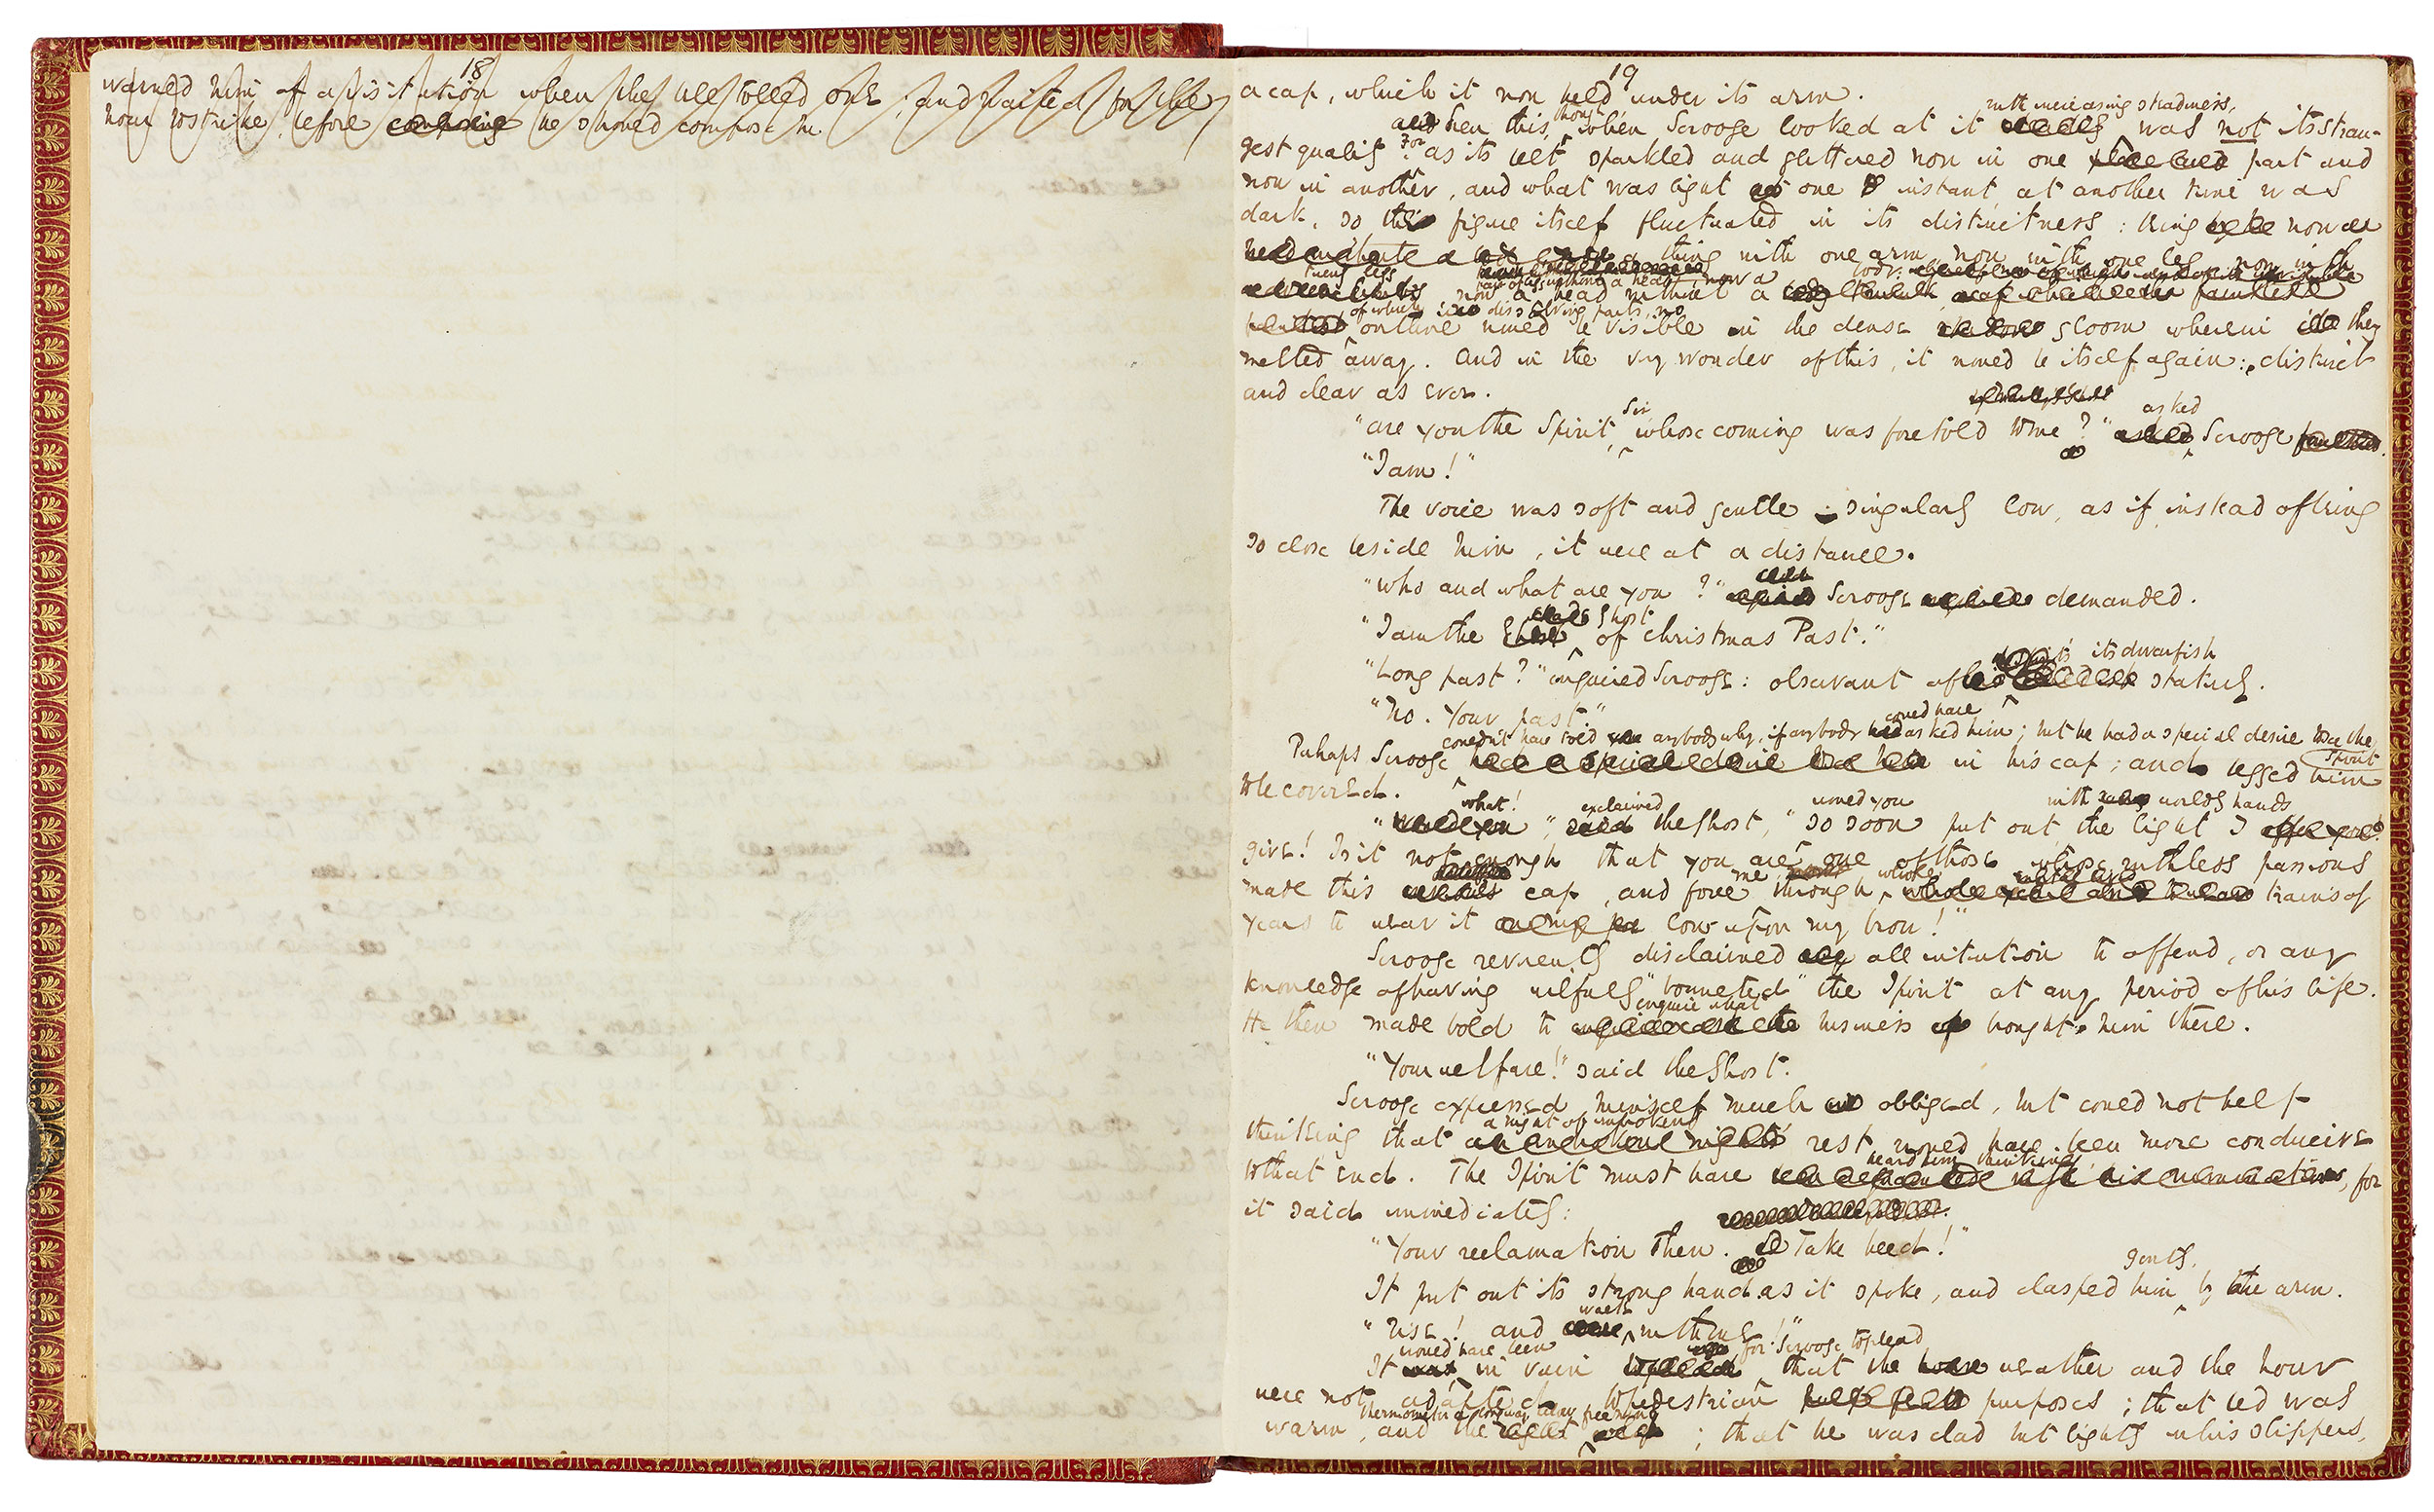 18
warned him of a visitation when the bell tolled one; and waited for the
hour to strike before composing he should compose
19
a cap, which it now held under its arm.
Even this, though, when Scrooge looked at it with increasing steadiness, was not its stran-
gest quality. For as its belt sparkled and glittered now in one part and
now in another, and what was light one instant, at another time was
dark, so the figure itself fluctuated in its distinctness: being now a
thing with one arm, now with one leg, now with
twenty legs, now a pair of legs without a head, now a head without a body:
of which dissolving parts, no outline would be visible in the dense gloom wherein they
melted away. And in the very wonder of this, it would be itself again: distinct
and clear as ever.
"Are you the Spirit, Sir, whose coming was foretold to me?" asked Scrooge.
"I am!"
The voice was soft and gentle singularly low, as if instead of being
so close beside him, it were at a distance.
"Who and what are you?" Scrooge demanded.
"I am the Ghost of Christmas Past."
"Long past?" inquired Scrooge: observant of its dwarfish stature.
"No. Your past."
Perhaps Scrooge couldn't have told anybody why, if anybody could have asked him; but he had a special desire to see the Spirit in his cap; and begged him
to be covered.
"What!" exclaimed the Ghost, "would you so soon put out, with worldly hands, the light I
give! Is it not enough that you are one of those whose ruthless passions
made this cap, and force me through whole trains of
years to wear it low upon my brow!"
Scrooge reverently disclaimed all intention to offend, or any
knowledge of having wilfully "bonneted" the Spirit at any period of his life.
He then made bold to inquire what business brought him there.
"Your welfare!" said the Ghost.
Scrooge expressed himself much obliged, but could not help
thinking that a night of unbroken rest would have been more conducive
to that end. The Spirit must have heard him thinking, for
it said immediately:
"Your reclamation then. Take heed!"
It put out its strong hand as it spoke, and clasped him gently by the arm.
"Rise! and walk with me!"
It would have been in vain for Scrooge to plead that the weather and the hour
were not adapted to pedestrian purposes; that bed was
warm, and the thermometer a long way below freezing; that he was clad but lightly in his slippers,